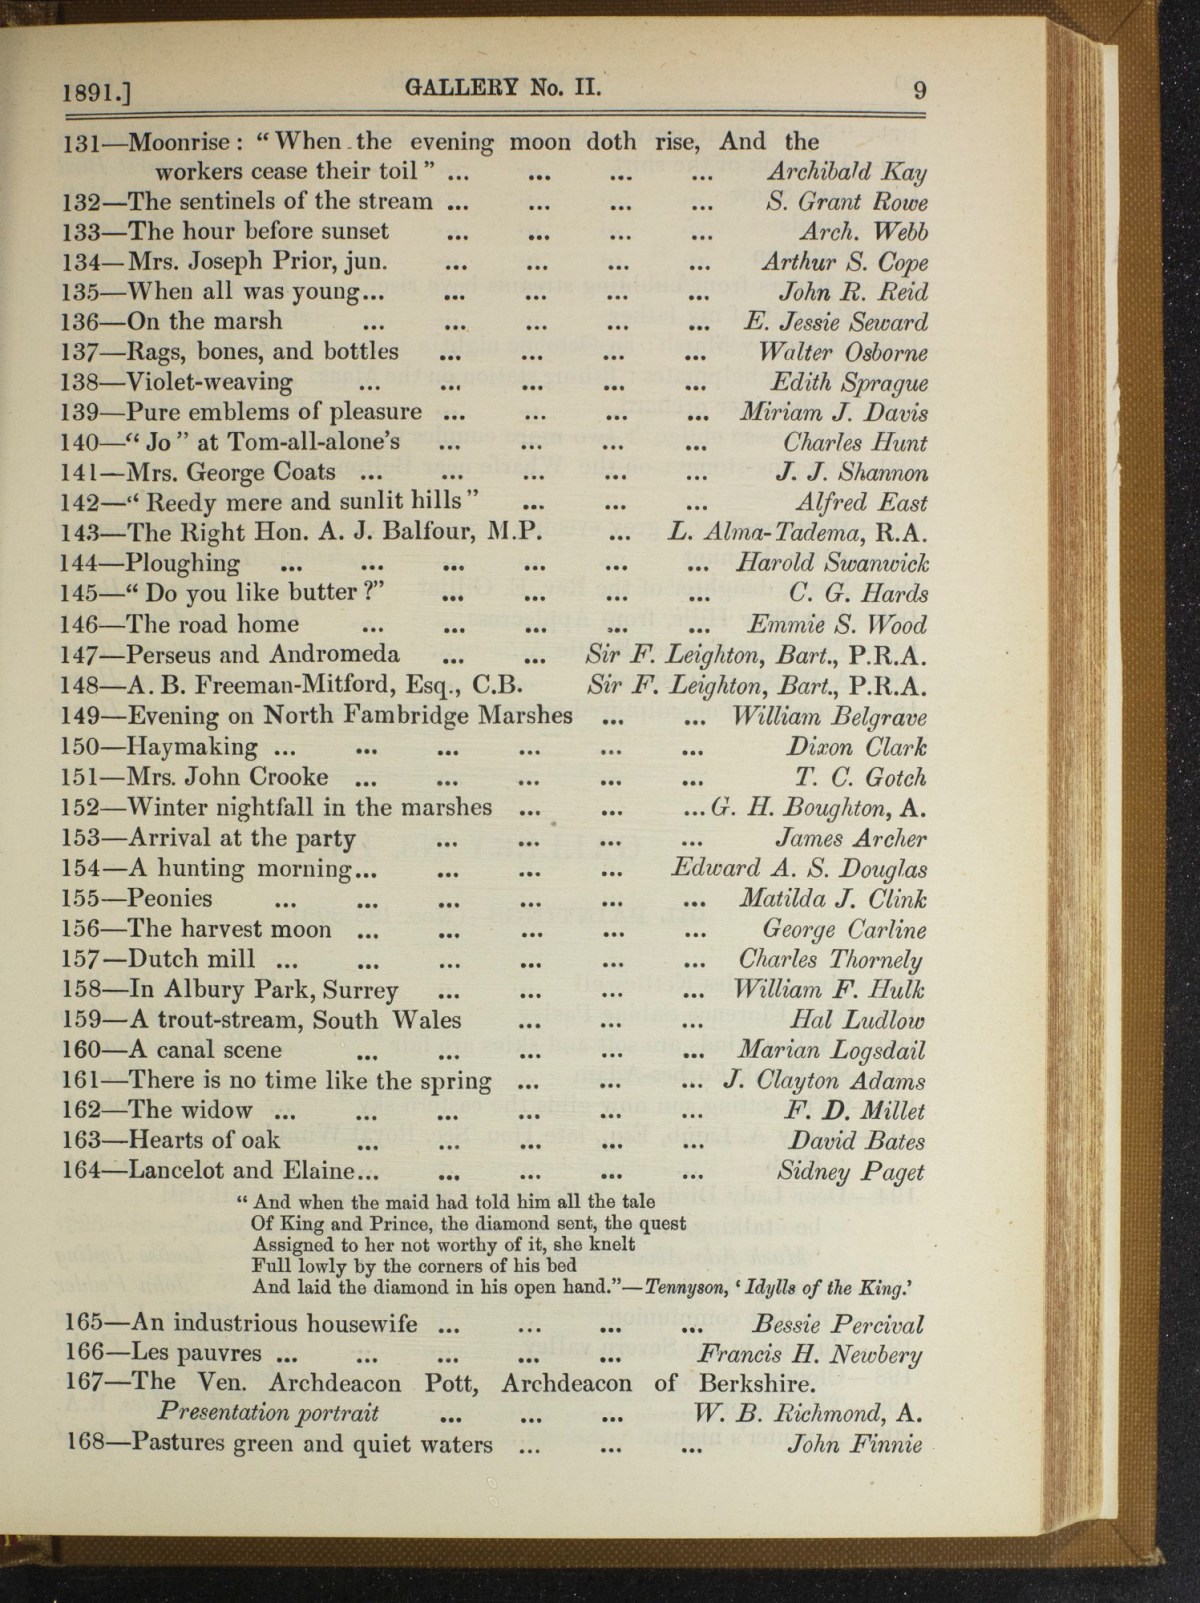 1891.] GALLERY No. II. 9
131—Moonrise: “When the evening moon doth rise, And the
workers cease their toil” ... ... ... ... Archibald Kay
132—The sentinels of the stream ... ... ... ... S. Grant Rowe
133—The hour before sunset ... ... ... ... Arch. Webb
134—Mrs. Joseph Prior, jun. ... ... ... ... Arthur S. Cope
135—When all was young... ... ... ... ... John R. Reid
136—On the marsh ... ... ... ... ... E. Jessie Seward
137—Rags, bones, and bottles ... ... ... ... Walter Osborne
138—Violet-weaving ... ... ... ... ... Edith Sprague
139—Pure emblems of pleasure ... ... ... ... Miriam J. Davis
140—“Jo” at Tom-all-alone’s ... ... ... ... Charles Hunt
141—Mrs. George Coats ... ... ... ... ... J. J. Shannon
142—“Reedy mere and sunlit hills” ... ... ... Alfred East
143—The Right Hon. A. J. Balfour, M.P. ... L. Alma-Tadema, R.A.
144—Ploughing ... ... ... ... ... ... Harold Swanwick
145—“Do you like butter?” ... ... ... ... C. G. Hards
146—The road home ... ... ... ... ... Emmie S. Wood
147—Perseus and Andromeda ... ... Sir F. Leighton, Bart., P.R.A.
148—A. B. Freeman-Mitford, Esq., C.B. Sir F. Leighton, Bart., P.R.A.
149—Evening on North Fambridge Marshes ... ... William Belgrave
150—Haymaking ... ... ... ... ... ... Dixon Clark
151—Mrs. John Crooke ... ... ... ... ... T. C. Gotch
152—Winter nightfall in the marshes ... ... ... G. H. Boughton, A.
153—Arrival at the party ... ... ... ... James Archer
154—A hunting morning... ... ... ... Edward A. S. Douglas
155—Peonies ... ... ... ... ... ... Matilda J. Clink
156—The harvest moon ... ... ... ... ... George Carline
157—Dutch mill ... ... ... ... ... ... Charles Thornely
158—In Albury Park, Surrey ... ... ... ... William F. Hulk
159—A trout-stream, South Wales ... ... ... Hal Ludlow
160—A canal scene ... ... ... ... ... Marian Logsdail
161—There is no time like the spring ... ... ... J. Clayton Adams
162—The widow ... ... ... ... ... ... F. D. Millet
163—Hearts of oak ... ... ... ... ... David Bates
164—Lancelot and Elaine... ... ... ... ... Sidney Paget
“And when the maid had told him all the tale
Of King and Prince, the diamond sent, the quest
Assigned to her not worthy of it, she knelt
Full lowly by the corners of his bed
And laid the diamond in his open hand.”—Tennyson, ‘Idylls of the King.’
165—An industrious housewife ... ... ... ... Bessie Percival
166—Les pauvres ... ... ... ... ... Francis H. Newbery
167—The Ven. Archdeacon Pott, Archdeacon of Berkshire.
Presentation portrait ... ... ... W. B. Richmond, A.
168—Pastures green and quiet waters ... ... ... John Finnie